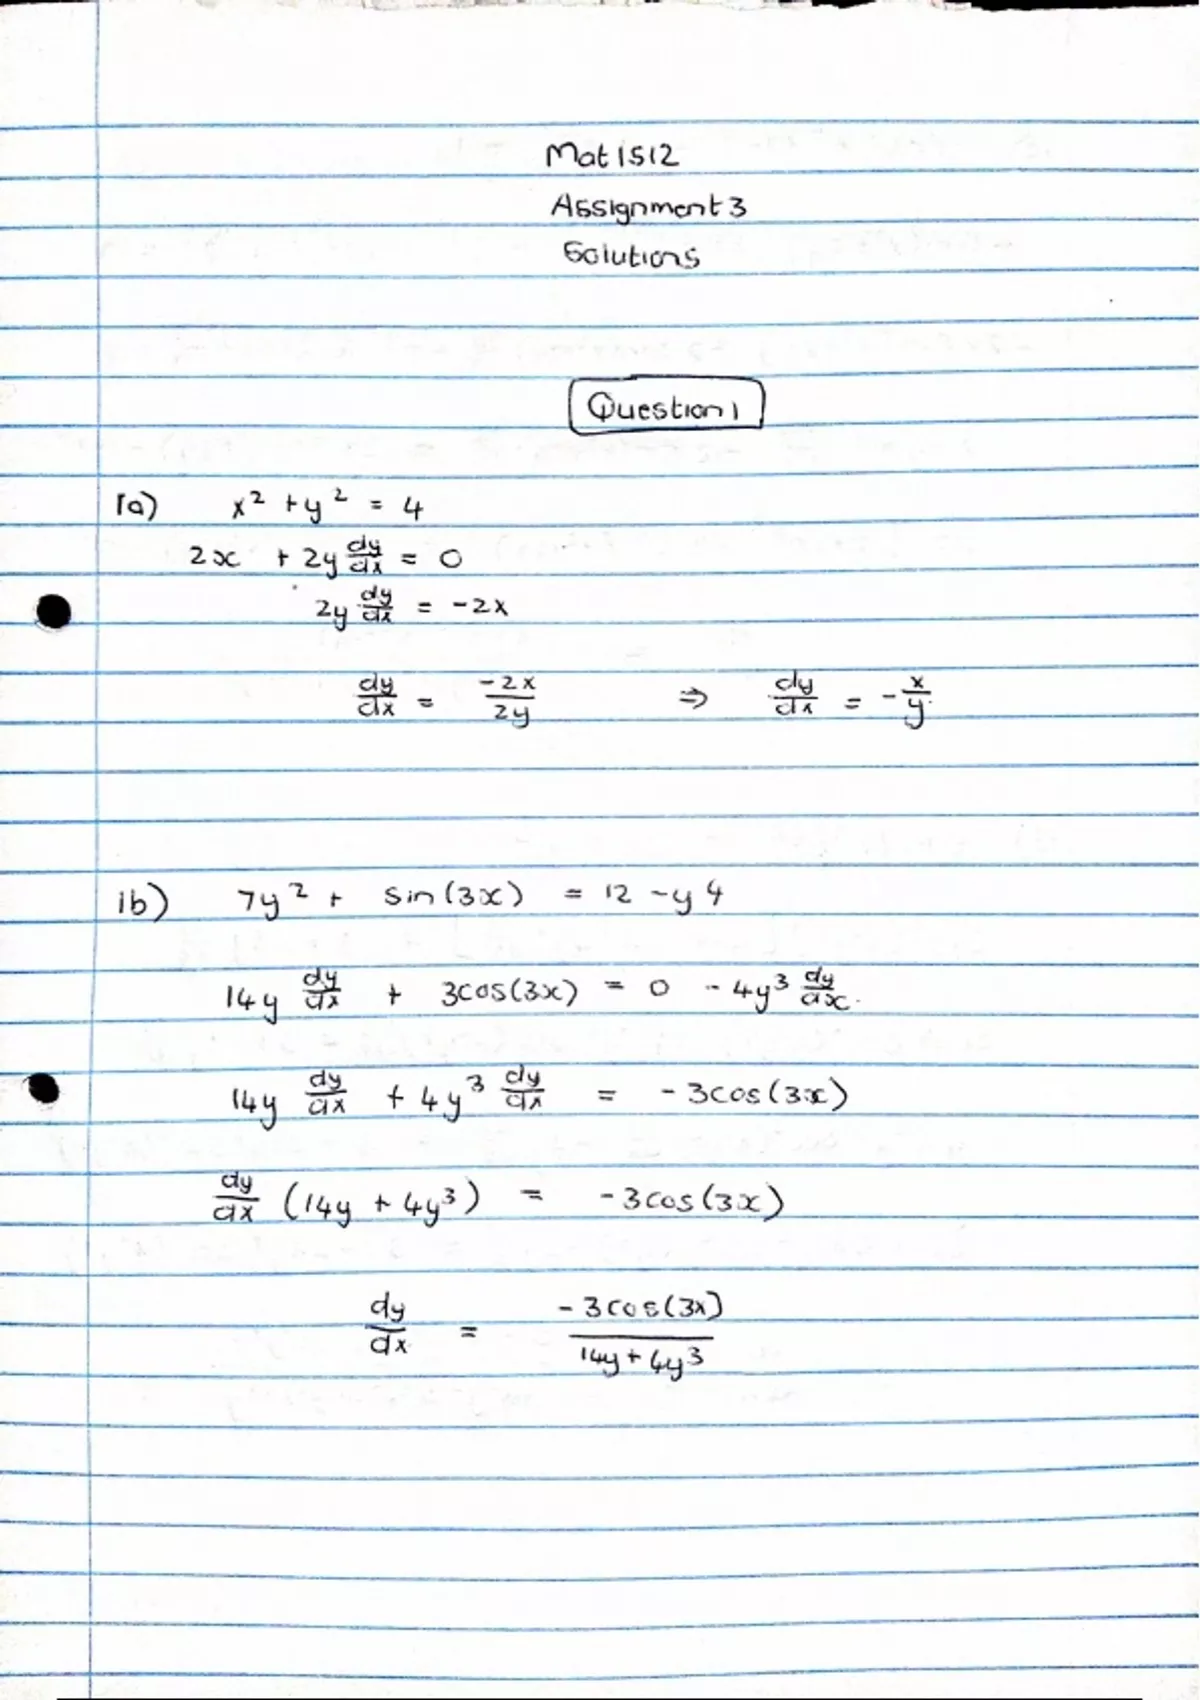 Mat1512
Assignment 3
Solutions
Question 1
1a) x² + y² = 4
2x + 2y dy/dx = 0
2y dy/dx = -2x
dy/dx = -2x/2y ⇒ dy/dx = -x/y.
1b) 7y² + sin(3x) = 12 - y⁴
14y dy/dx + 3cos(3x) = 0 - 4y³ dy/dx.
14y dy/dx + 4y³ dy/dx = -3cos(3x)
dy/dx (14y + 4y³) = -3cos(3x)
dy/dx = -3cos(3x)/14y + 4y³